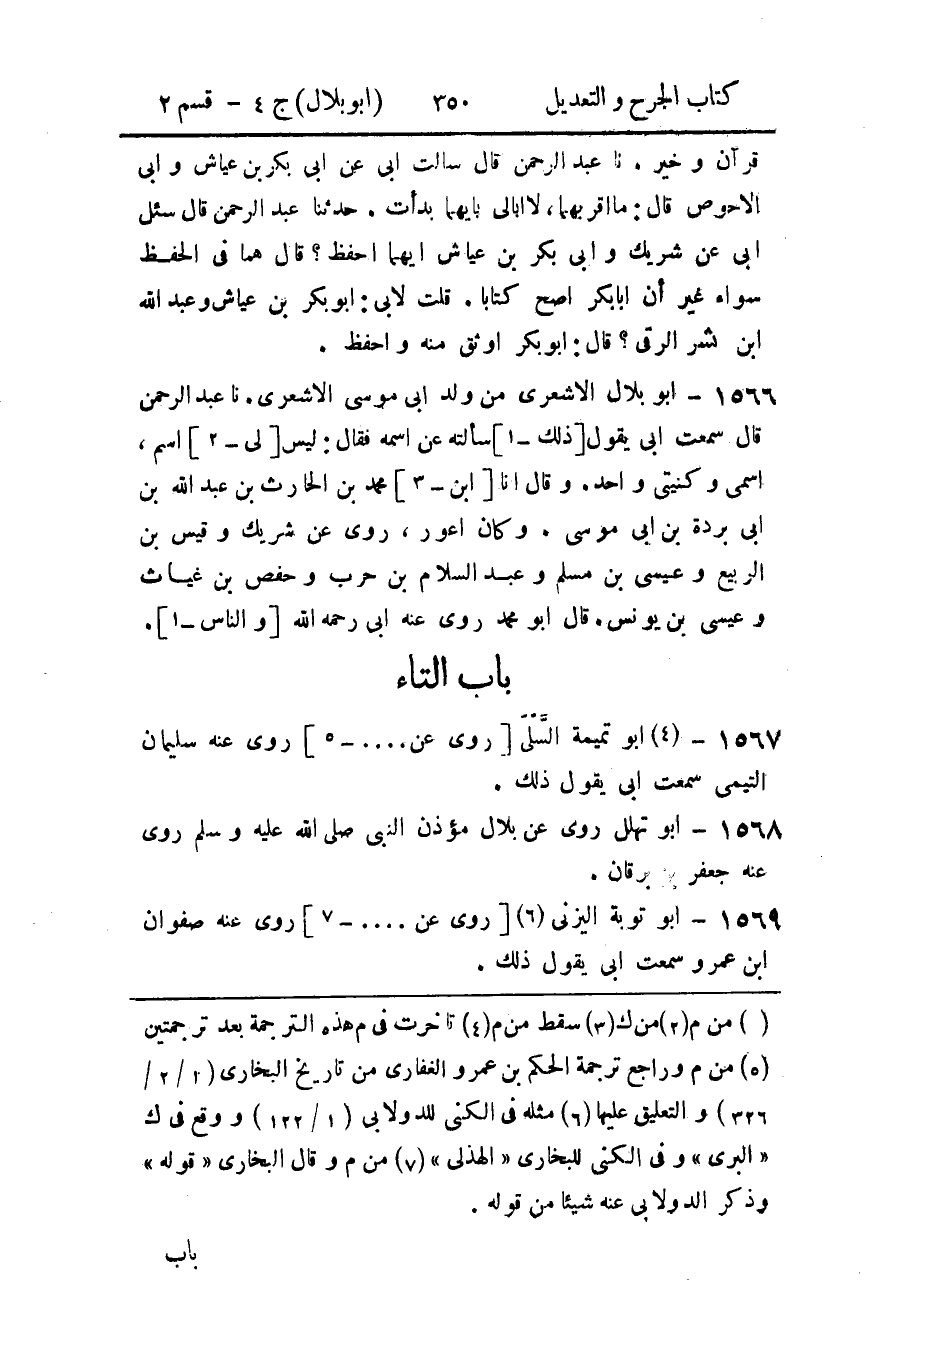 كتاب الجرح و التعديل ٣٥٠ (ابو بلال) ج ٤ - قسم ٢
قرآن و خير . نا عبد الرحمن قال سالت ابى عن ابى بكر بن عياش و ابى
الاحوص قال: ما اقربهما، لا ابالى بايهما بدأت . حدثنا عبد الرحمن قال سئل
ابى عن شريك و ابى بكر بن عياش ايهما احفظ ؟ قال هما فى الحفظ
سواء غير أن ابابكر اصح كتابا . قلت لابى: ابوبكر بن عياش و عبد الله
ابن بشر الرقى ؟ قال: ابوبكر اوثق منه و احفظ .
١٥٦٦ - ابو بلال الاشعرى من ولد ابى موسى الاشعرى . نا عبد الرحمن
قال سمعت ابى يقول [ذلك - ١] سألته عن اسمه فقال: ليس [لى - ٢] اسم ،
اسمى و كنيتى و احد . و قال انا [ابن - ٣] محمد بن الحارث بن عبد الله بن
ابى بردة بن ابى موسى . و كان اعور ، روى عن شريك و قيس بن
الربيع و عيسى بن مسلم و عبد السلام بن حرب و حفص بن غياث
و عيسى بن يونس . قال ابو محمد روى عنه ابى رحمه الله [و الناس - ١] .
باب التاء
١٥٦٧ - (٤) ابو تميمة السلى [روى عن .... - ٥] روى عنه سليمان
التيمى سمعت ابى يقول ذلك .
١٥٦٨ - أبو تهلل روى عن بلال مؤذن النبى صلى الله عليه و سلم روى
عنه جعفر بن برقان .
١٥٦٩ - ابو توبة اليزنى (٦) [روى عن .... - ٧] روى عنه صفوان
ابن عمرو سمعت ابى يقول ذلك .
( ) من م (٢) من ك (٣) سقط من م (٤) تاخرت فى م هذه الترجمة بعد ترجمتين
(٥) من م وراجع ترجمة الحكم بن عمرو الغفارى من تاريخ البخارى (١ / ٢ /
٣٢٦) و التعليق عليها (٦) مثله فى الكنى للدولابى (١ / ١٢٢) و وقع فى ك
« البرى » و فى الكنى للبخارى « الهذلى » (٧) من م و قال البخارى « قوله »
وذكر الدولابى عنه شيئا من قوله .
باب